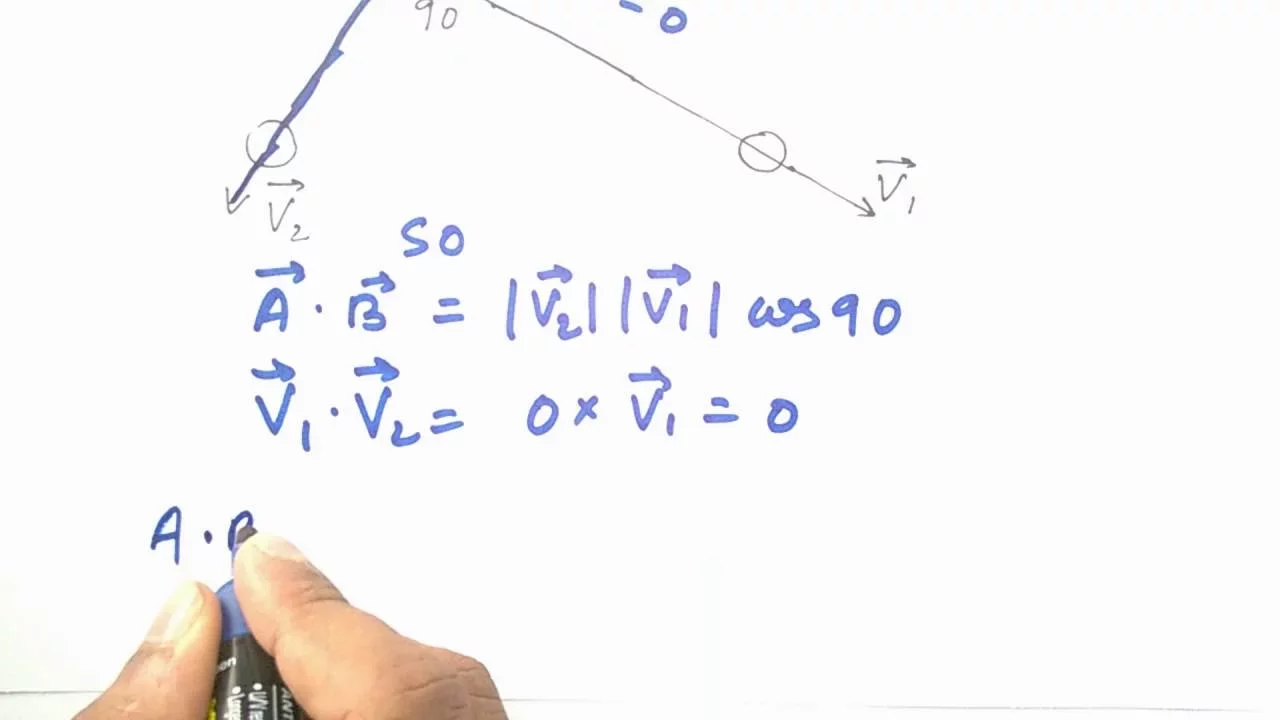 90
- 0
V⃗₁
V⃗₂
SO
A⃗ · B⃗ = |V⃗₂| |V⃗₁| cos 90
V⃗₁ · V⃗₂ = 0 × V⃗₁ = 0
A ·